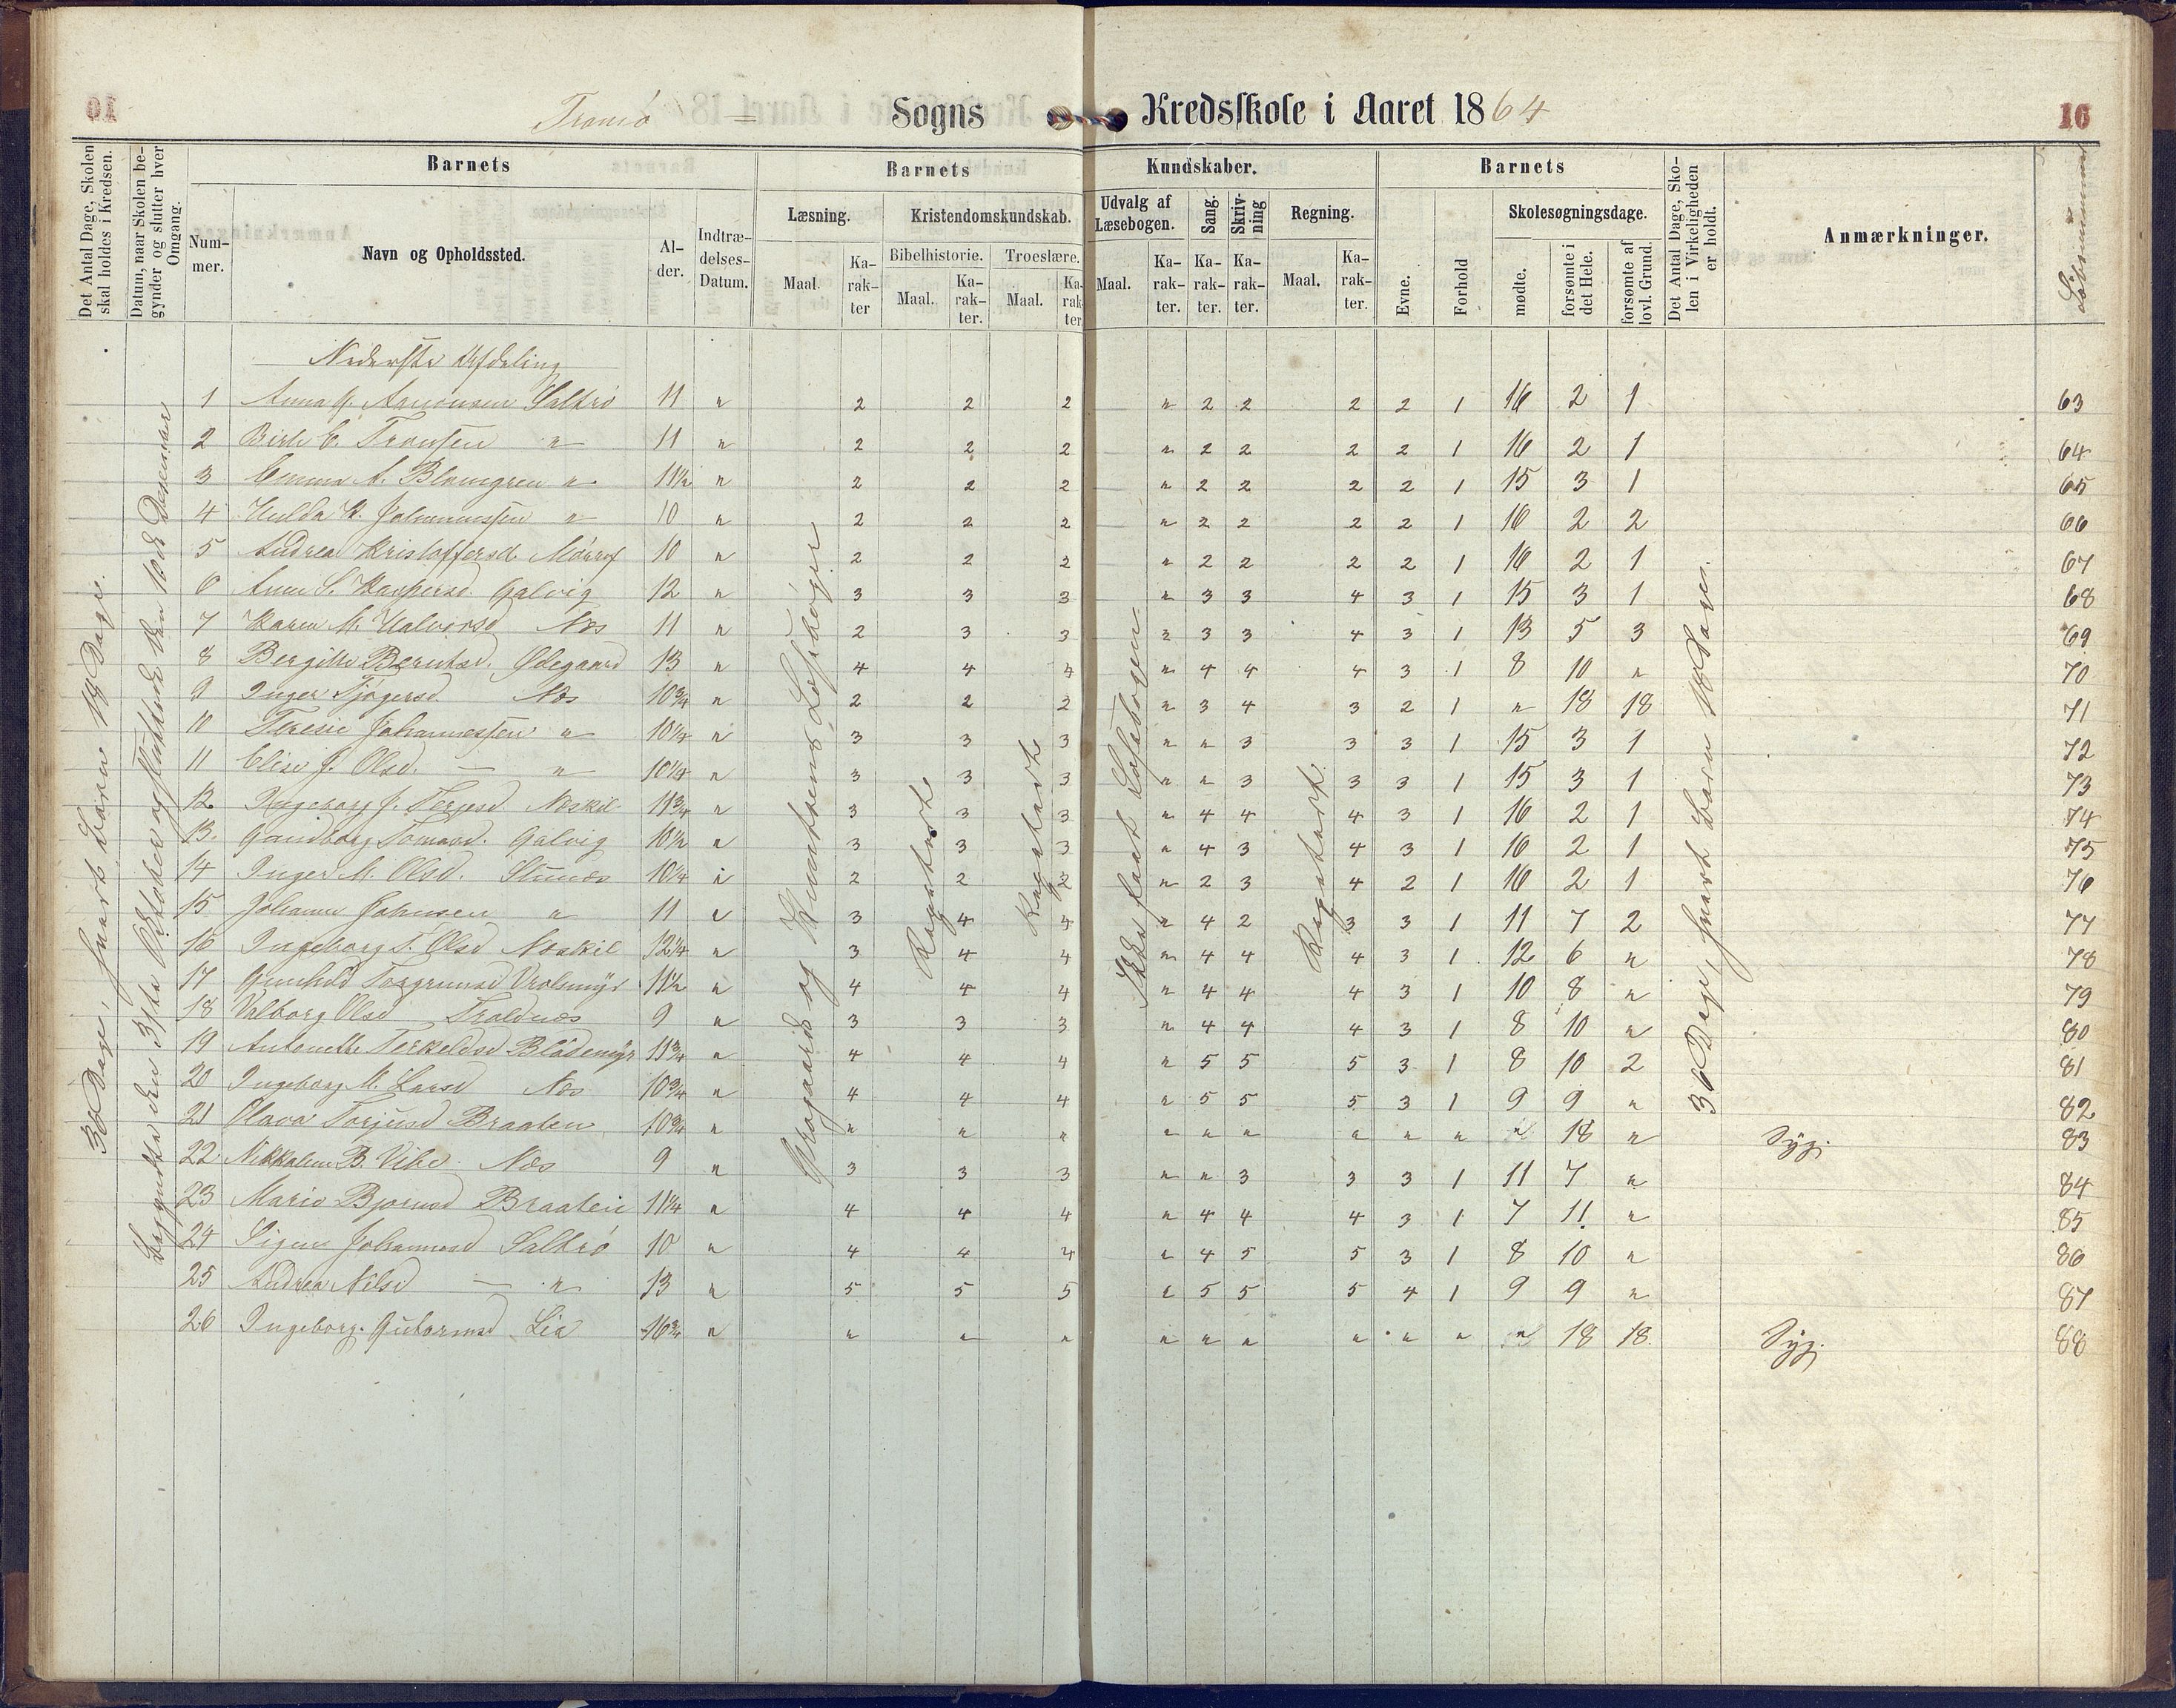 Tromö Sogns Kredsskole i Aaret 1864
16
Det Antal Dage, Skolen skal holdes i Kredsen.
Datum, naar Skolen begynder og slutter hver Omgang.
Barnets
Barnets
Kundskaber.
Barnets
Det Antal Dage, Skolen i Virkeligheden er holdt.
Anmærkninger.
Löbenummer
Nummer.
Navn og Opholdssted.
Alder.
Indtrædelses-Datum.
Læsning.
Kristendomskundskab.
Udvalg af Læsebogen.
Sang.
Skrivning
Regning.
Evne.
Forhold
Skolesøgningsdage.
Bibelhistorie.
Troeslære.
mødte.
forsømte i det Hele.
forsømte af lovl. Grund.
Maal. Karakter Maal. Karakter. Maal. Karakter Maal. Karakter. Karakter. Karakter. Maal. Karakter.
Nederste Afdeling
1 Anna G. Aanonsen Saltrö 11 " 2 2 2 " 2 2 2 2 1 16 2 1 63
2 Birte C. Tronsen " 11 " 2 2 2 " 2 2 2 2 1 16 2 1 64
3 Emma A. Blomgren " 11½ " 2 2 2 " 2 2 2 2 1 15 3 1 65
4 Hulda Johannessen " 10 " 2 2 2 " 2 2 2 2 1 16 2 2 66
5 Andrea Kristoffersd. 10 " 2 2 2 " 2 2 2 2 1 16 2 1 67
6 Anne S. Kaspersd. Galvig 12 " 3 3 3 " 3 3 4 3 1 15 3 1 68
7 Karen M. Halvorsd Næs 11 " 2 3 3 " 3 3 4 3 1 13 5 3 69
8 Bergitte Berntsd. Ödegaard 13 " 4 4 4 " 4 4 4 3 1 8 10 " 70
9 Inger Tjögersd. Næs 10¾ " 2 2 2 " 3 4 3 2 1 " 18 18 71
10 Teresie Johannessen " 10¼ " 3 3 3 " " 3 3 3 1 15 3 1 72
11 Elise J. Olsd. — " 10¼ " 3 3 3 " " 3 3 3 1 15 3 1 73
12 Ingeborg J. Terjesd. Næskil 11¾ " 3 3 3 " 4 4 4 3 1 16 2 1 74
13. Gundborg Tomasd. Galvig 10½ " 3 3 3 " 4 3 4 3 1 16 2 1 75
14 Inger M. Olsd. 10¼ " 2 2 2 " 2 3 4 2 1 16 2 1 76
15 Johanne Johnsen " 11 " 3 4 4 " 4 2 3 3 1 11 7 2 77
16 Ingeborg T. Olsd Næskil 12¼ " 3 4 4 " 4 4 4 3 1 12 6 " 78
17 Gunhild Torgrimsd Vrolsmyr 11½ " 4 4 4 " 4 4 4 3 1 10 8 " 79
18 Valborg Olsd Troldnæs 9 " 3 3 3 " 4 4 4 3 1 8 10 " 80
19 Antonette Terkelsd Blödemyr 11¾ " 4 4 4 " 5 5 5 3 1 8 10 2 81
20 Ingeborg M. Larsd Næs 10¾ " 4 4 4 " 5 5 5 3 1 9 9 " 82
21 Olava Torjusd Braaten 10¾ " " " " " " " " " " " 18 " Syg. 83
22 Nikkoline B. Vibe Næs 9 " 3 3 3 " " 3 3 3 1 11 7 " 84
23 Marie Bjornsd Braaten 11¼ " 4 4 4 " 4 4 4 3 1 7 11 " 85
24 Signe Johannesd Saltrö 10 " 4 4 4 " 4 5 5 3 1 8 10 " 86
25 Andrea Nilsd — " 13 " 5 5 5 " 5 5 5 4 1 9 9 " 87
26 Ingeborg Gutormsd Lia 16¾ " " " " " " " " " " " 18 18 Syg. 88
36 Dage, hvert Barn 18 Dage.
Begyndte den 31te Oktober og sluttede den 10de December
Grogaards og Knudsens Læsebøger
Bogen
Ikke havt Læsebogen
36 Dage, hvert Barn 18 Dage.